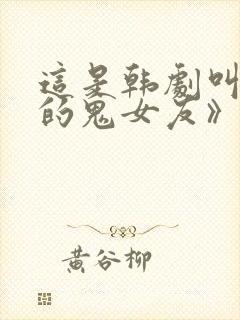 這是韩劇叫
的鬼女友》
黄谷柳